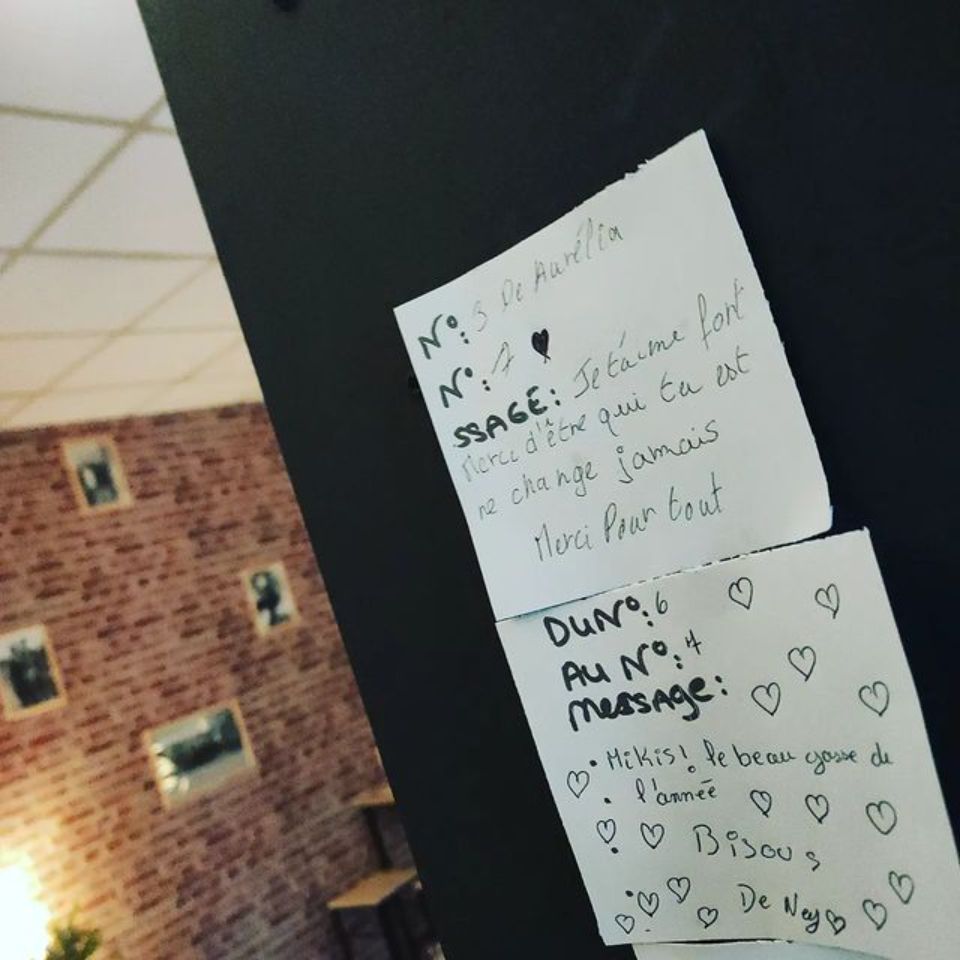 N°: 3 De Aurélia
N°: 7
SSAGE: Je t'aime fort
Merci d'être qui tu est
ne change jamais
Merci Pour tout
DU N°: 6
AU N°: 7
MESSAGE:
Mikis! le beau gosse de
l'année
Bisous
De Ney